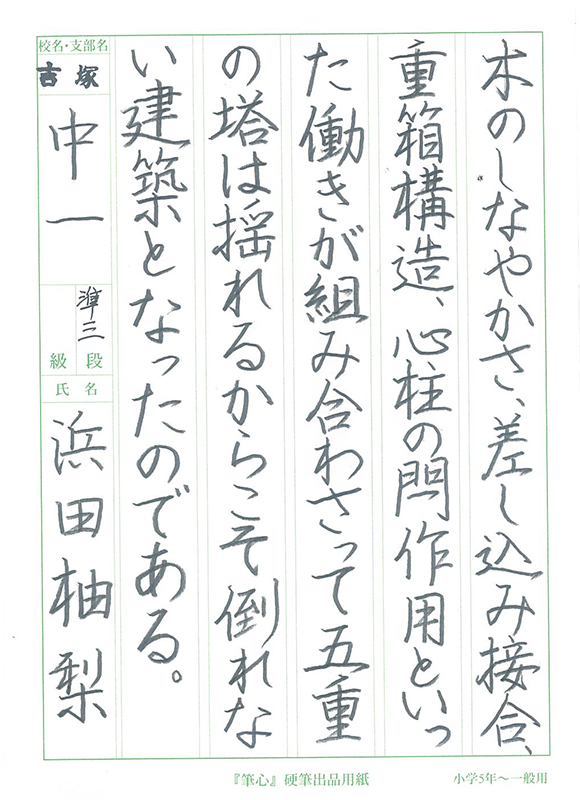 木のしなやかさ、差し込み接合、
重箱構造、心柱の閂作用といっ
た働きが組み合わさって五重
の塔は揺れるからこそ倒れな
い建築となったのである。
校名・支部名
吉塚
中一
準三
段級
氏名
浜田柚梨
『筆心』硬筆出品用紙
小学5年～一般用